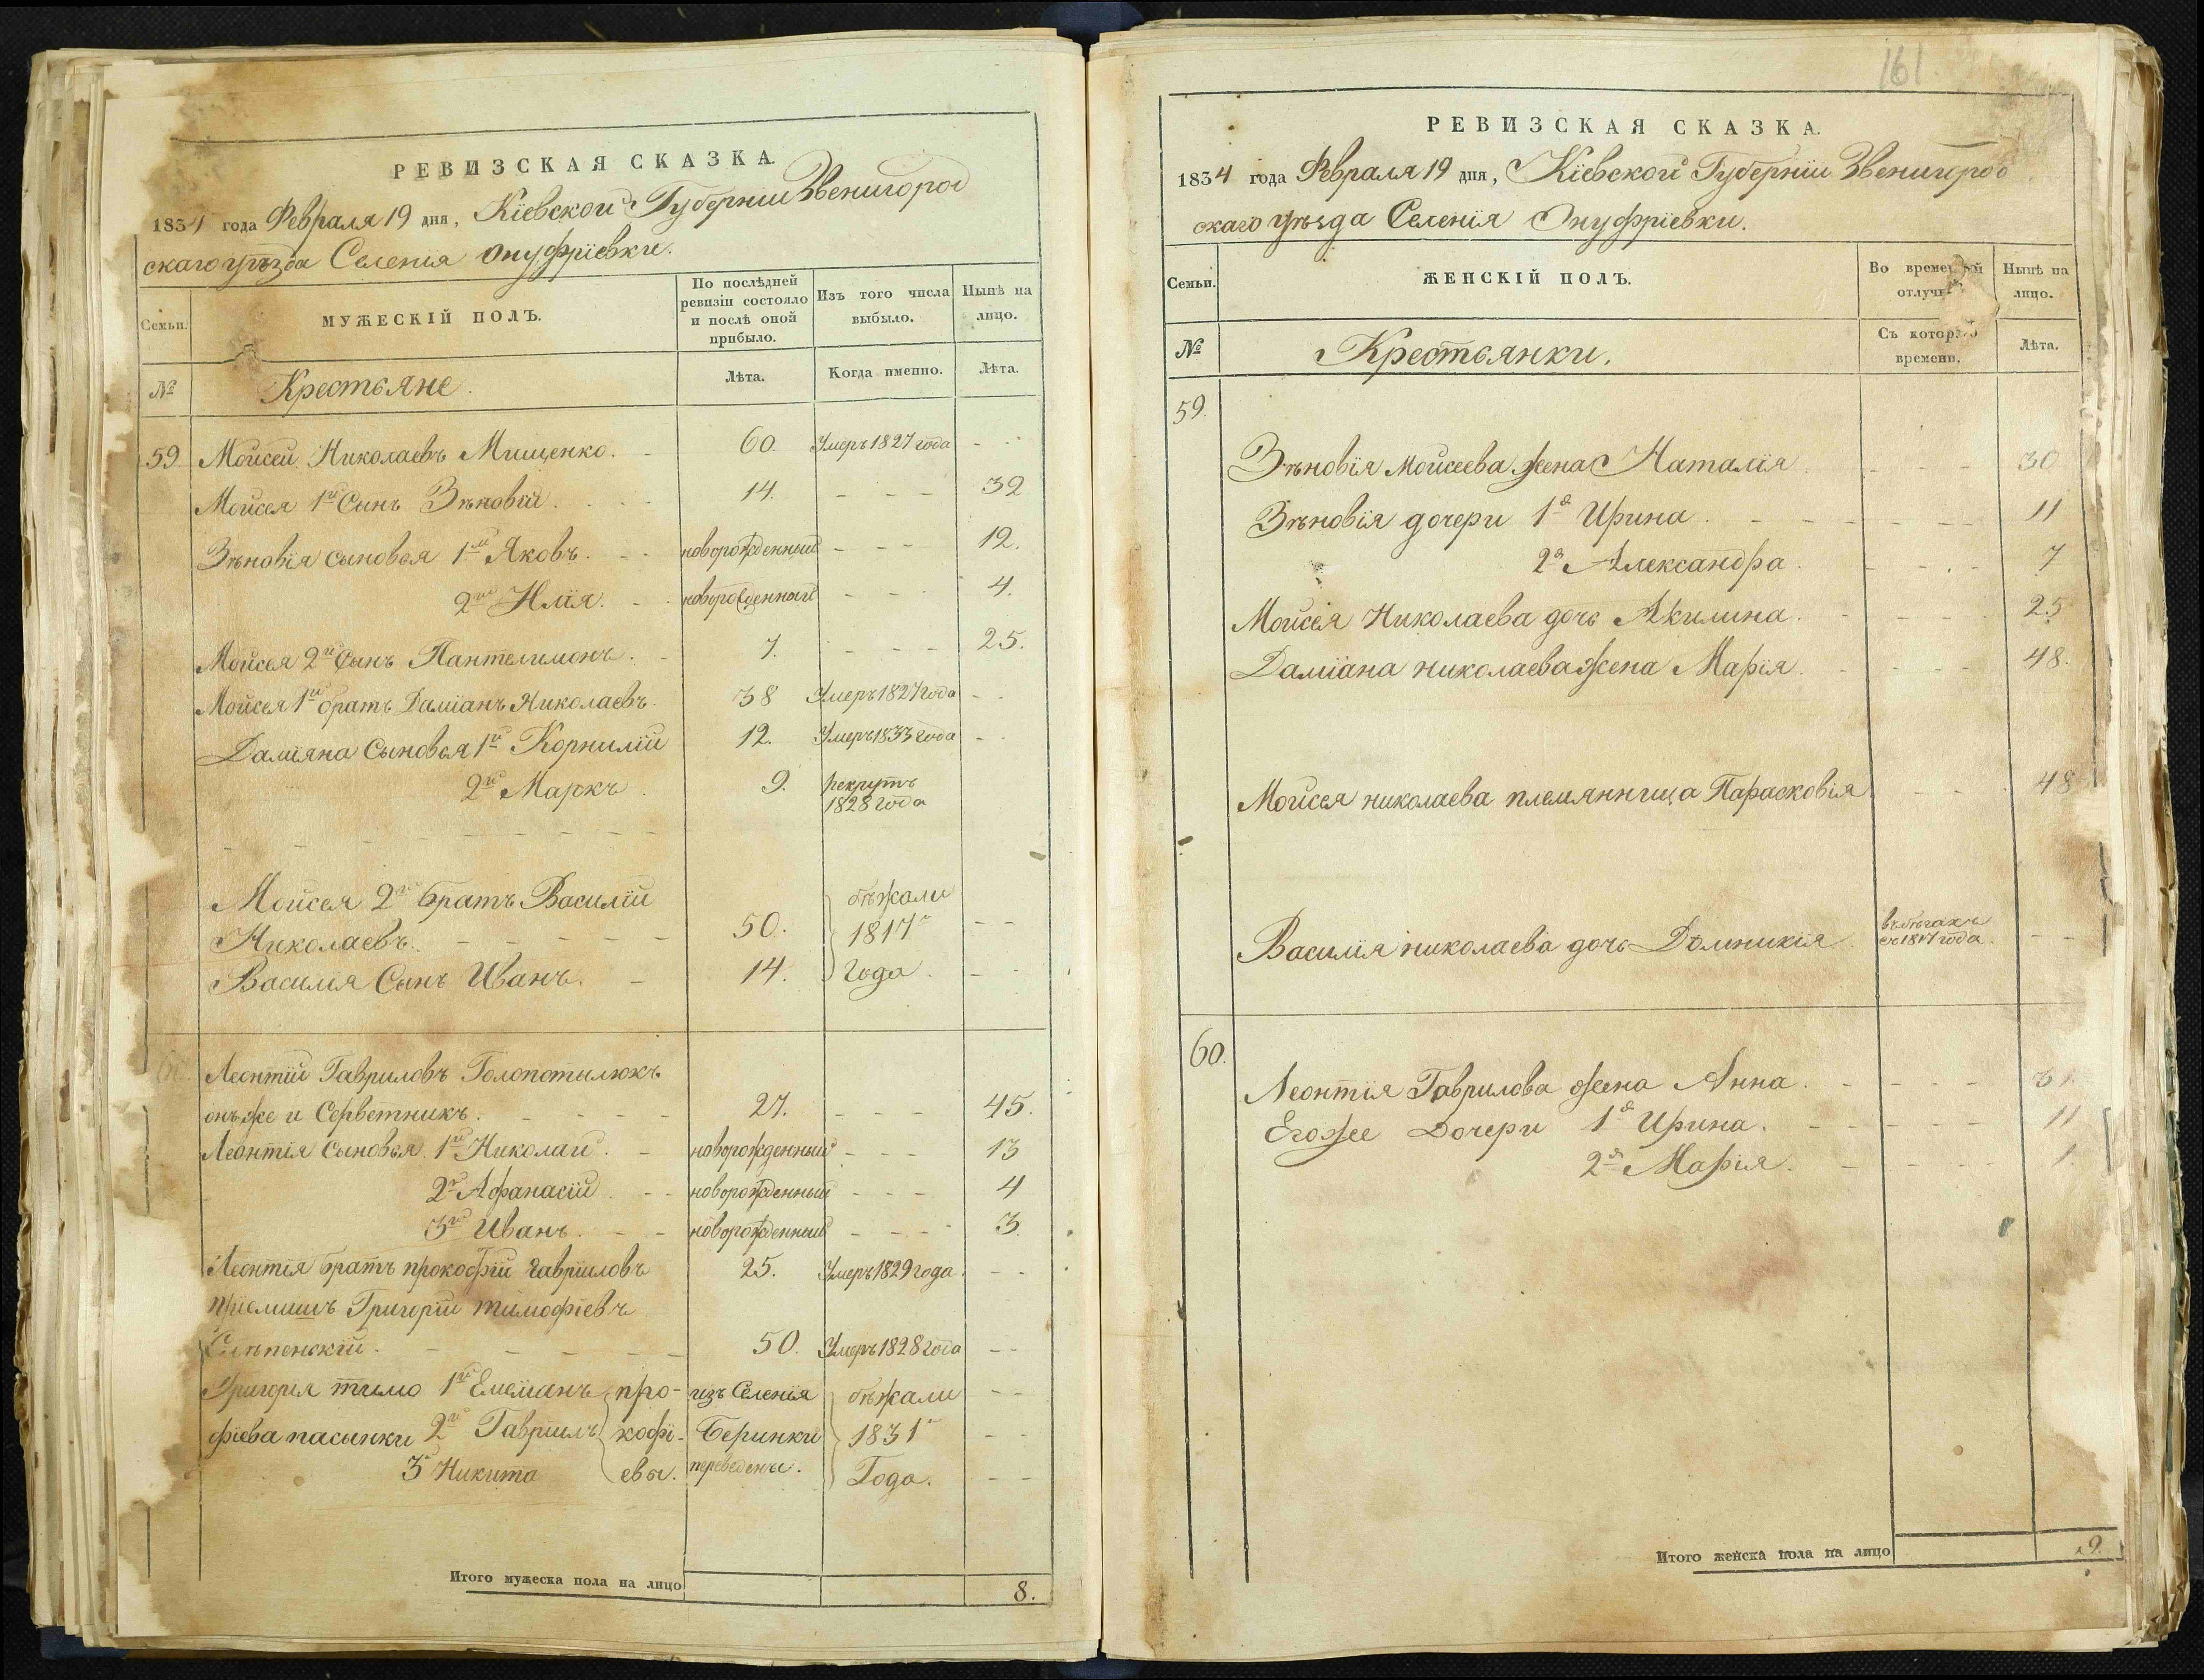 РЕВИЗСКАЯ СКАЗКА.
1834 года Февраля 19 дня, Кіевской Губерніи Звенигород
скаго уѣзда Селенія Онуфріевки.
Семьи.
МУЖЕСКІЙ ПОЛЪ.
По послѣдней
ревизіи состояло
и послѣ оной
прибыло.
Изъ того числа
выбыло.
Нынѣ на
лицо.
№
Крестьяне.
Лѣта.
Когда именно.
Лѣта.
59. Мойсей Николаевъ Мищенко. 60. Умеръ 1827 года
Мойсея 1й Сынъ Зѣновій. 14. 32
Зѣновія сыновья 1й Яковъ. новорожденный 12.
2й Илія. новорожденный 4.
Мойсея 2й Сынъ Пантелимонъ. 7. 25.
Мойсея 1й братъ Даміанъ Николаевъ. 38 Умеръ 1827 года
Даміяна Сыновья 1й Корнилій 12. Умеръ 1833 года
2й Маркъ 9. рекрутъ
1828 года
Мойсея 2й братъ Василій бѣжали
Николаевъ. 50. 1817г
Василія Сынъ Иванъ. 14. года.
Леонтій Гавриловъ Голопотылюкъ
онъ же и Серветникъ. 27. 45.
Леонтія сыновья 1й Николай. новорожденный 13
2й Афанасій новорожденный 4
3й Иванъ. новорожденный 3.
Леонтія братъ прокофій гавріиловъ 25. Умеръ 1829 года.
пріемишъ Григорій тимофіевъ
50. Умеръ 1828 года
Григорія тимо 1й Емеліанъ про- изъ Селенія бѣжали
фіева пасынки 2й Гавріилъ кофі- Беринки 1831г
3й Никита евы. переведены. Года.
Итого мужеска пола на лицо 8.
161.
РЕВИЗСКАЯ СКАЗКА.
1834 года Февраля 19 дня, Кіевской Губерніи Звенигрод
скаго уѣзда Селенія Онуфріевки.
Семьи.
ЖЕНСКІЙ ПОЛЪ.
Во временной
отлучкѣ
Нынѣ на
лицо.
№
Крестьянки.
Съ котораго
времени.
Лѣта.
59.
Зѣновія Мойсеева жена Наталія 30
Зѣновія дочери 1я Ирина. 11
2я Александра. 7
Мойсея Николаева дочь Акилина. 25
Даміана николаева жена Марія. 48.
Мойсея николаева племянница Парасковія 48
Василія николаева дочь Домникія въ бѣгахъ
съ 1817 года.
60.
Леонтія Гаврилова жена Анна. 31.
Егожее Дочери 1я Ирина. 11
2я Марія. 1.
Итого женска пола на лицо 9.